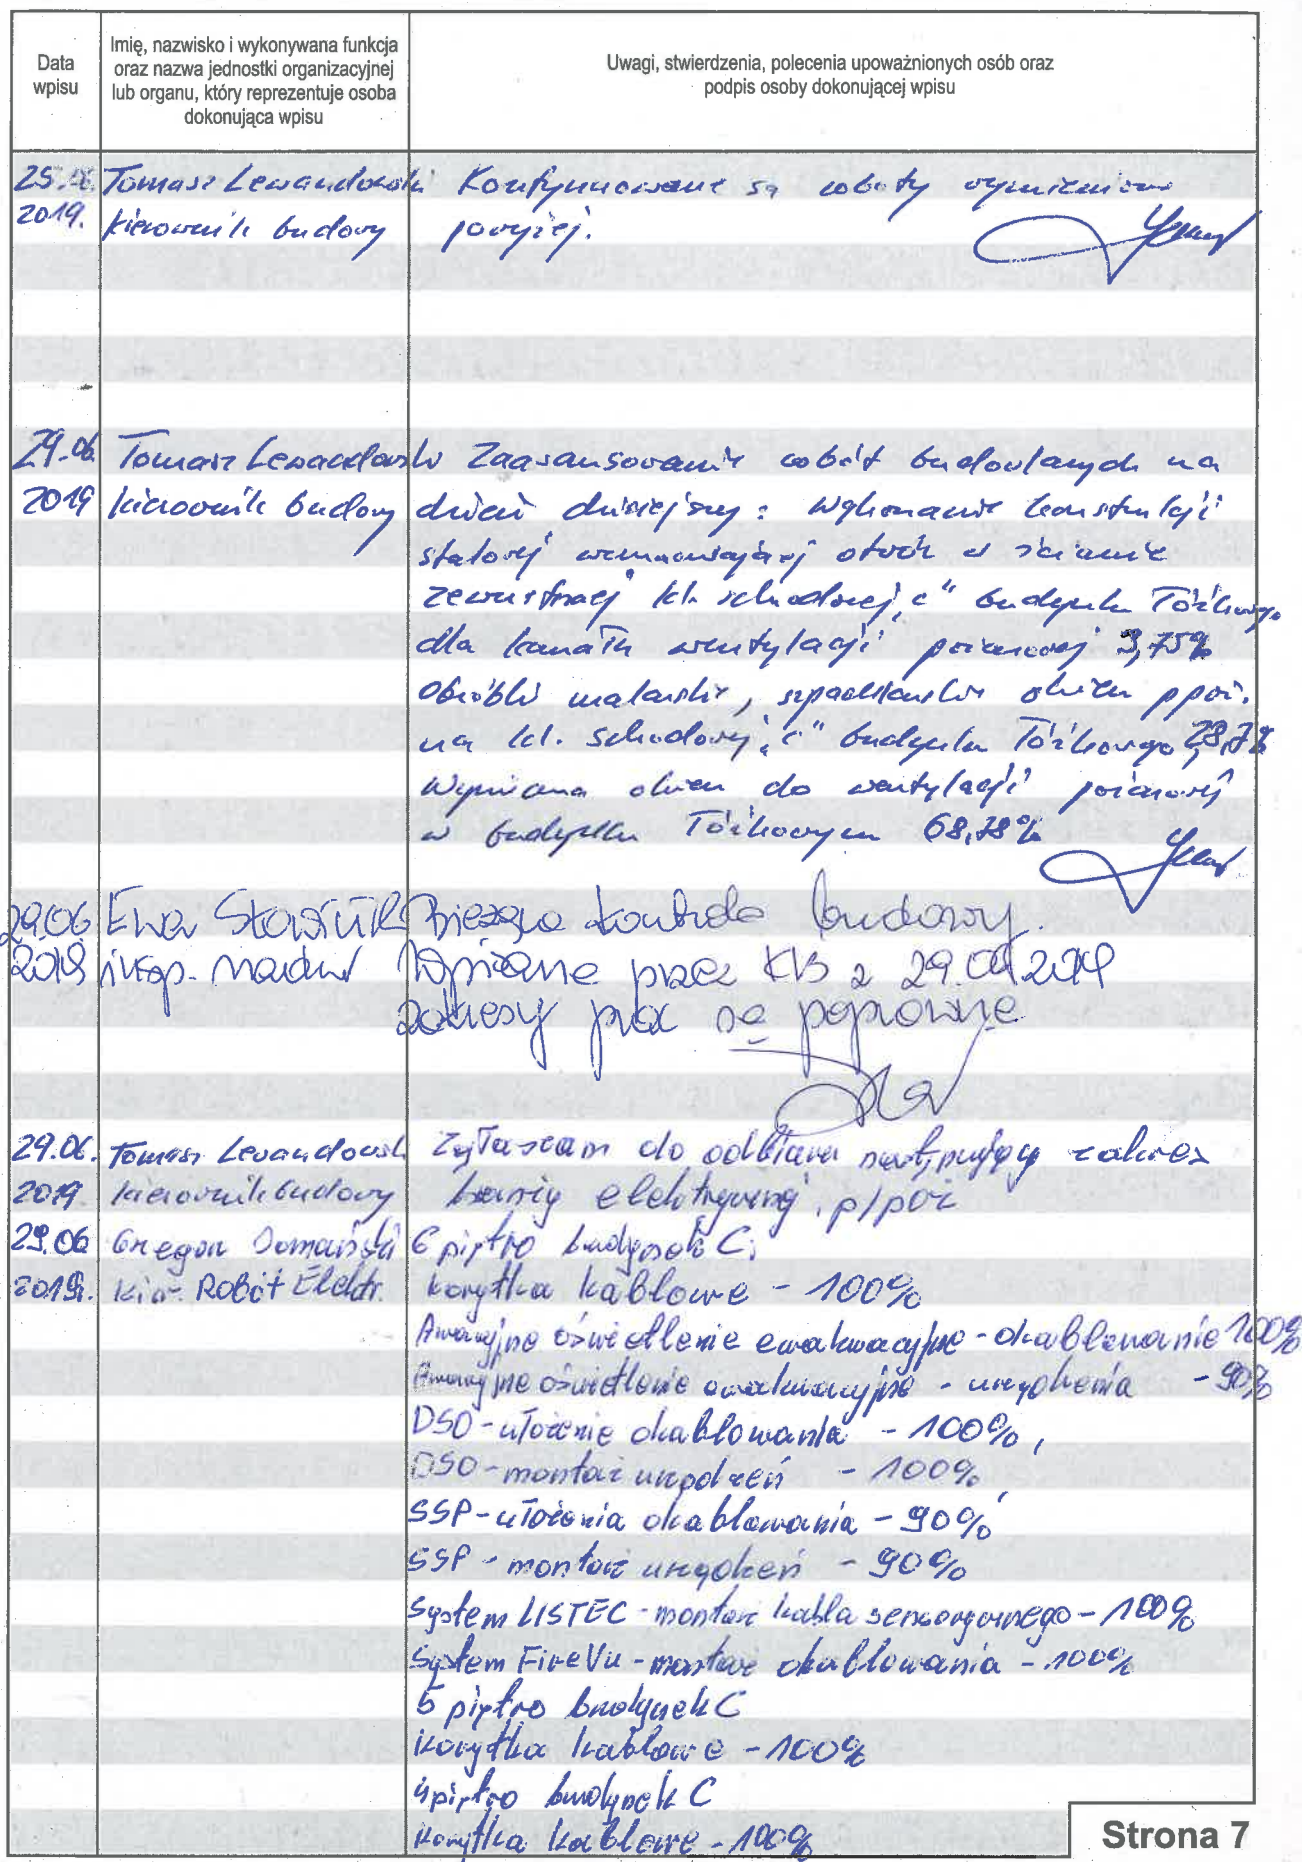 Data wpisu
Imię, nazwisko i wykonywana funkcja
oraz nazwa jednostki organizacyjnej
lub organu, który reprezentuje osoba
dokonująca wpisu
Uwagi, stwierdzenia, polecenia upoważnionych osób oraz
podpis osoby dokonującej wpisu
25. Tomasz Lewandowski Kontynuowane są roboty wymienione
2019. kierownik budowy powyżej.
29.06. Tomasz Lewandowski Zaawansowanie robót budowlanych na
2019 kierownik budowy dzień dzisiejszy: Wykonanie konstrukcji
stalowej wzmacniającej otwór w ścianie
zewnętrznej kl. schodowej „C" budynku Łóżkowego
dla kanału wentylacji pożarowej 3,75%
Obróbki malarskie, szpachlarskie okien ppoż.
na kl. schodowej „C" budynku Łóżkowego 28,7%
Wymiana okien do wentylacji pożarowej
w budynku Łóżkowym 68,78%
29.06 Ewa Bieżąca kontrola budowy.
2019 insp. nadzoru Wpisane przez KB z 29.06.2019
zakresy prac są poprawne
29.06. Tomasz Lewandowski Zgłaszam do odbioru następujący zakres
2019 kierownik budowy branży elektrycznej, p/poż
29.06 Grzegorz Domański 6 piętro budynek C;
2019r. Kier. Robót Elektr. korytka kablowe - 100%
Awaryjne oświetlenie ewakuacyjne - okablowanie 100%
Awaryjne oświetlenie ewakuacyjne - urządzenia - 90%
DSO - ułożenie okablowania - 100%,
DSO - montaż urządzeń - 100%,
SSP - ułożenia okablowania - 90%
SSP - montaż urządzeń - 90%
System LISTEC - montaż kabla sensorycznego - 100%
System FireVu - montaż okablowania - 100%
5 piętro budynek C
korytka kablowe - 100%
4 piętro budynek C
Korytka kablowe - 100%
Strona 7